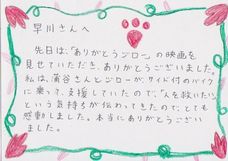 早川さんへ
先日は、「ありがとうジロー」の映画を
見せていただき、ありがとうございました。
私は、蒲谷さんとジローが、サイド付のバイク
に乗って、支援していたので、「人を救いたい」
という気持ちが伝わってきたので、とても
感動しました。本当にありがとうござい
ました。